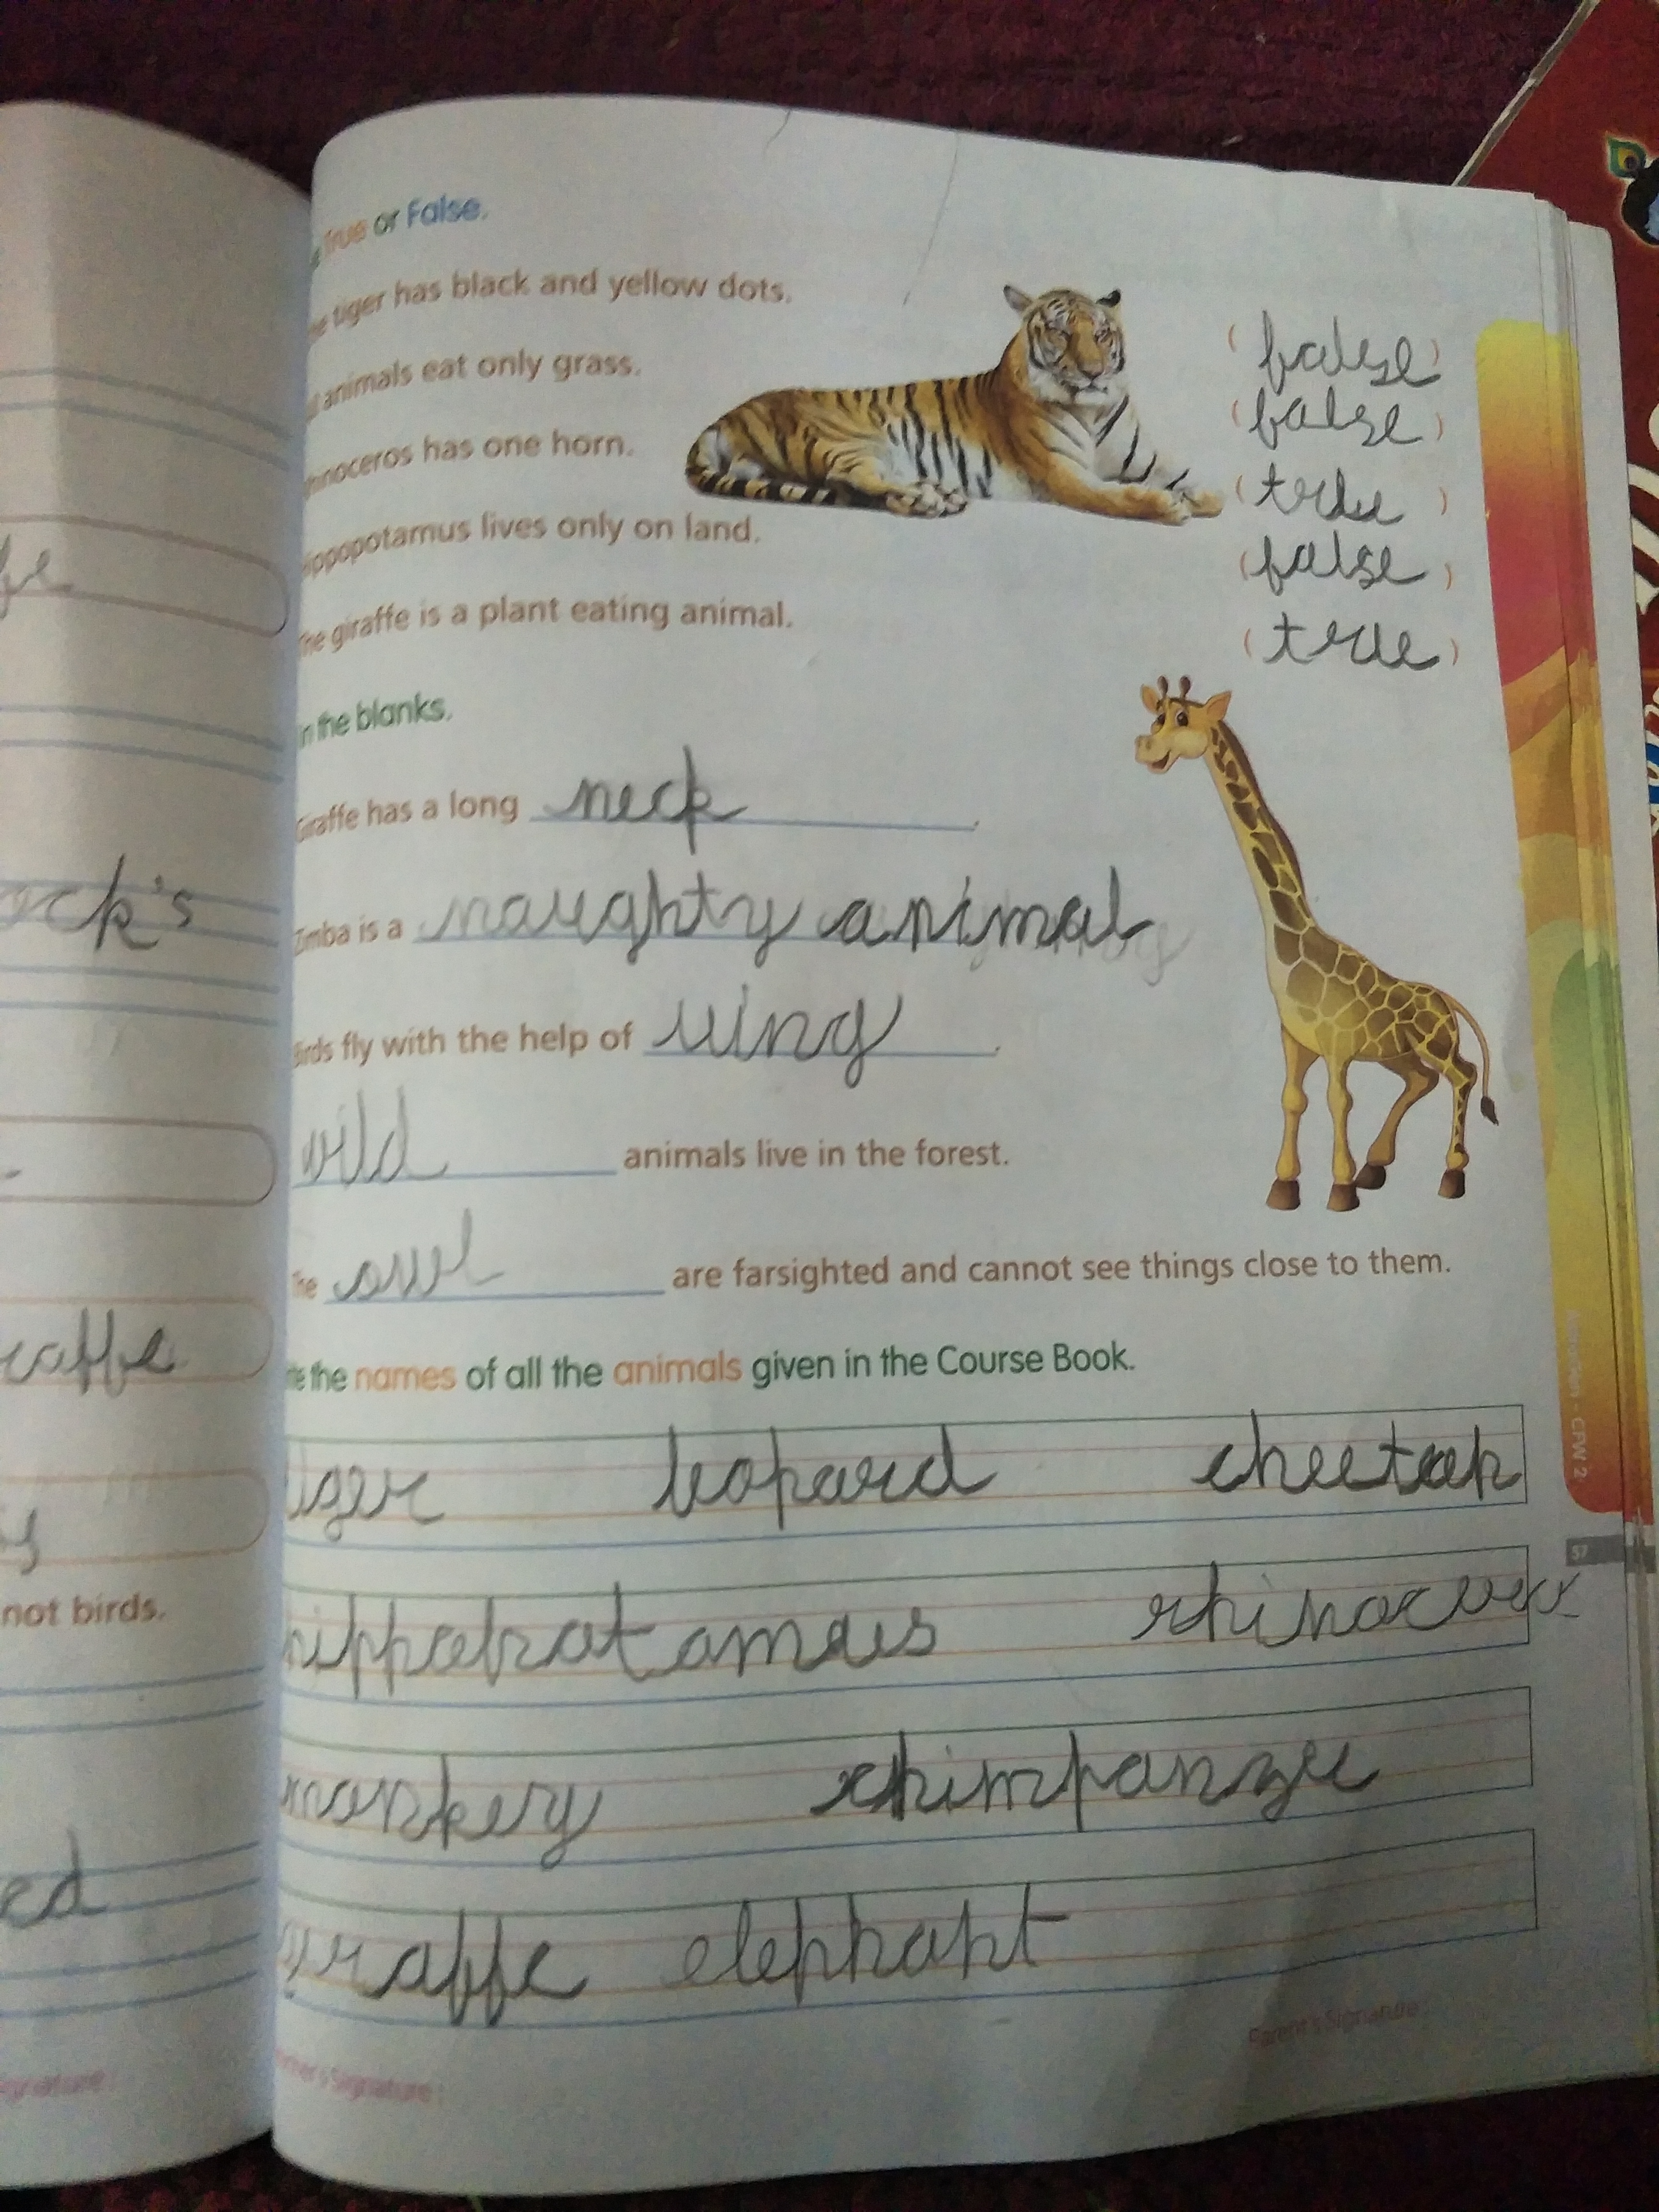 fe
ock's
raffe
not birds.
ed
ignature:
True or False.
he tiger has black and yellow dots.
( false )
animals eat only grass.
( false )
hinoceros has one horn.
( true )
ippopotamus lives only on land.
( false )
The giraffe is a plant eating animal.
( true )
in the blanks.
Giraffe has a long neck.
Zimba is a naughty animal
Birds fly with the help of wing.
wild animals live in the forest.
The owl are farsighted and cannot see things close to them.
te the names of all the animals given in the Course Book.
iger leopard cheetah
hippopotamus
monkey chimpanzee
giraffe elephant
Parent's Signature
's Signature :
CPW 2
57